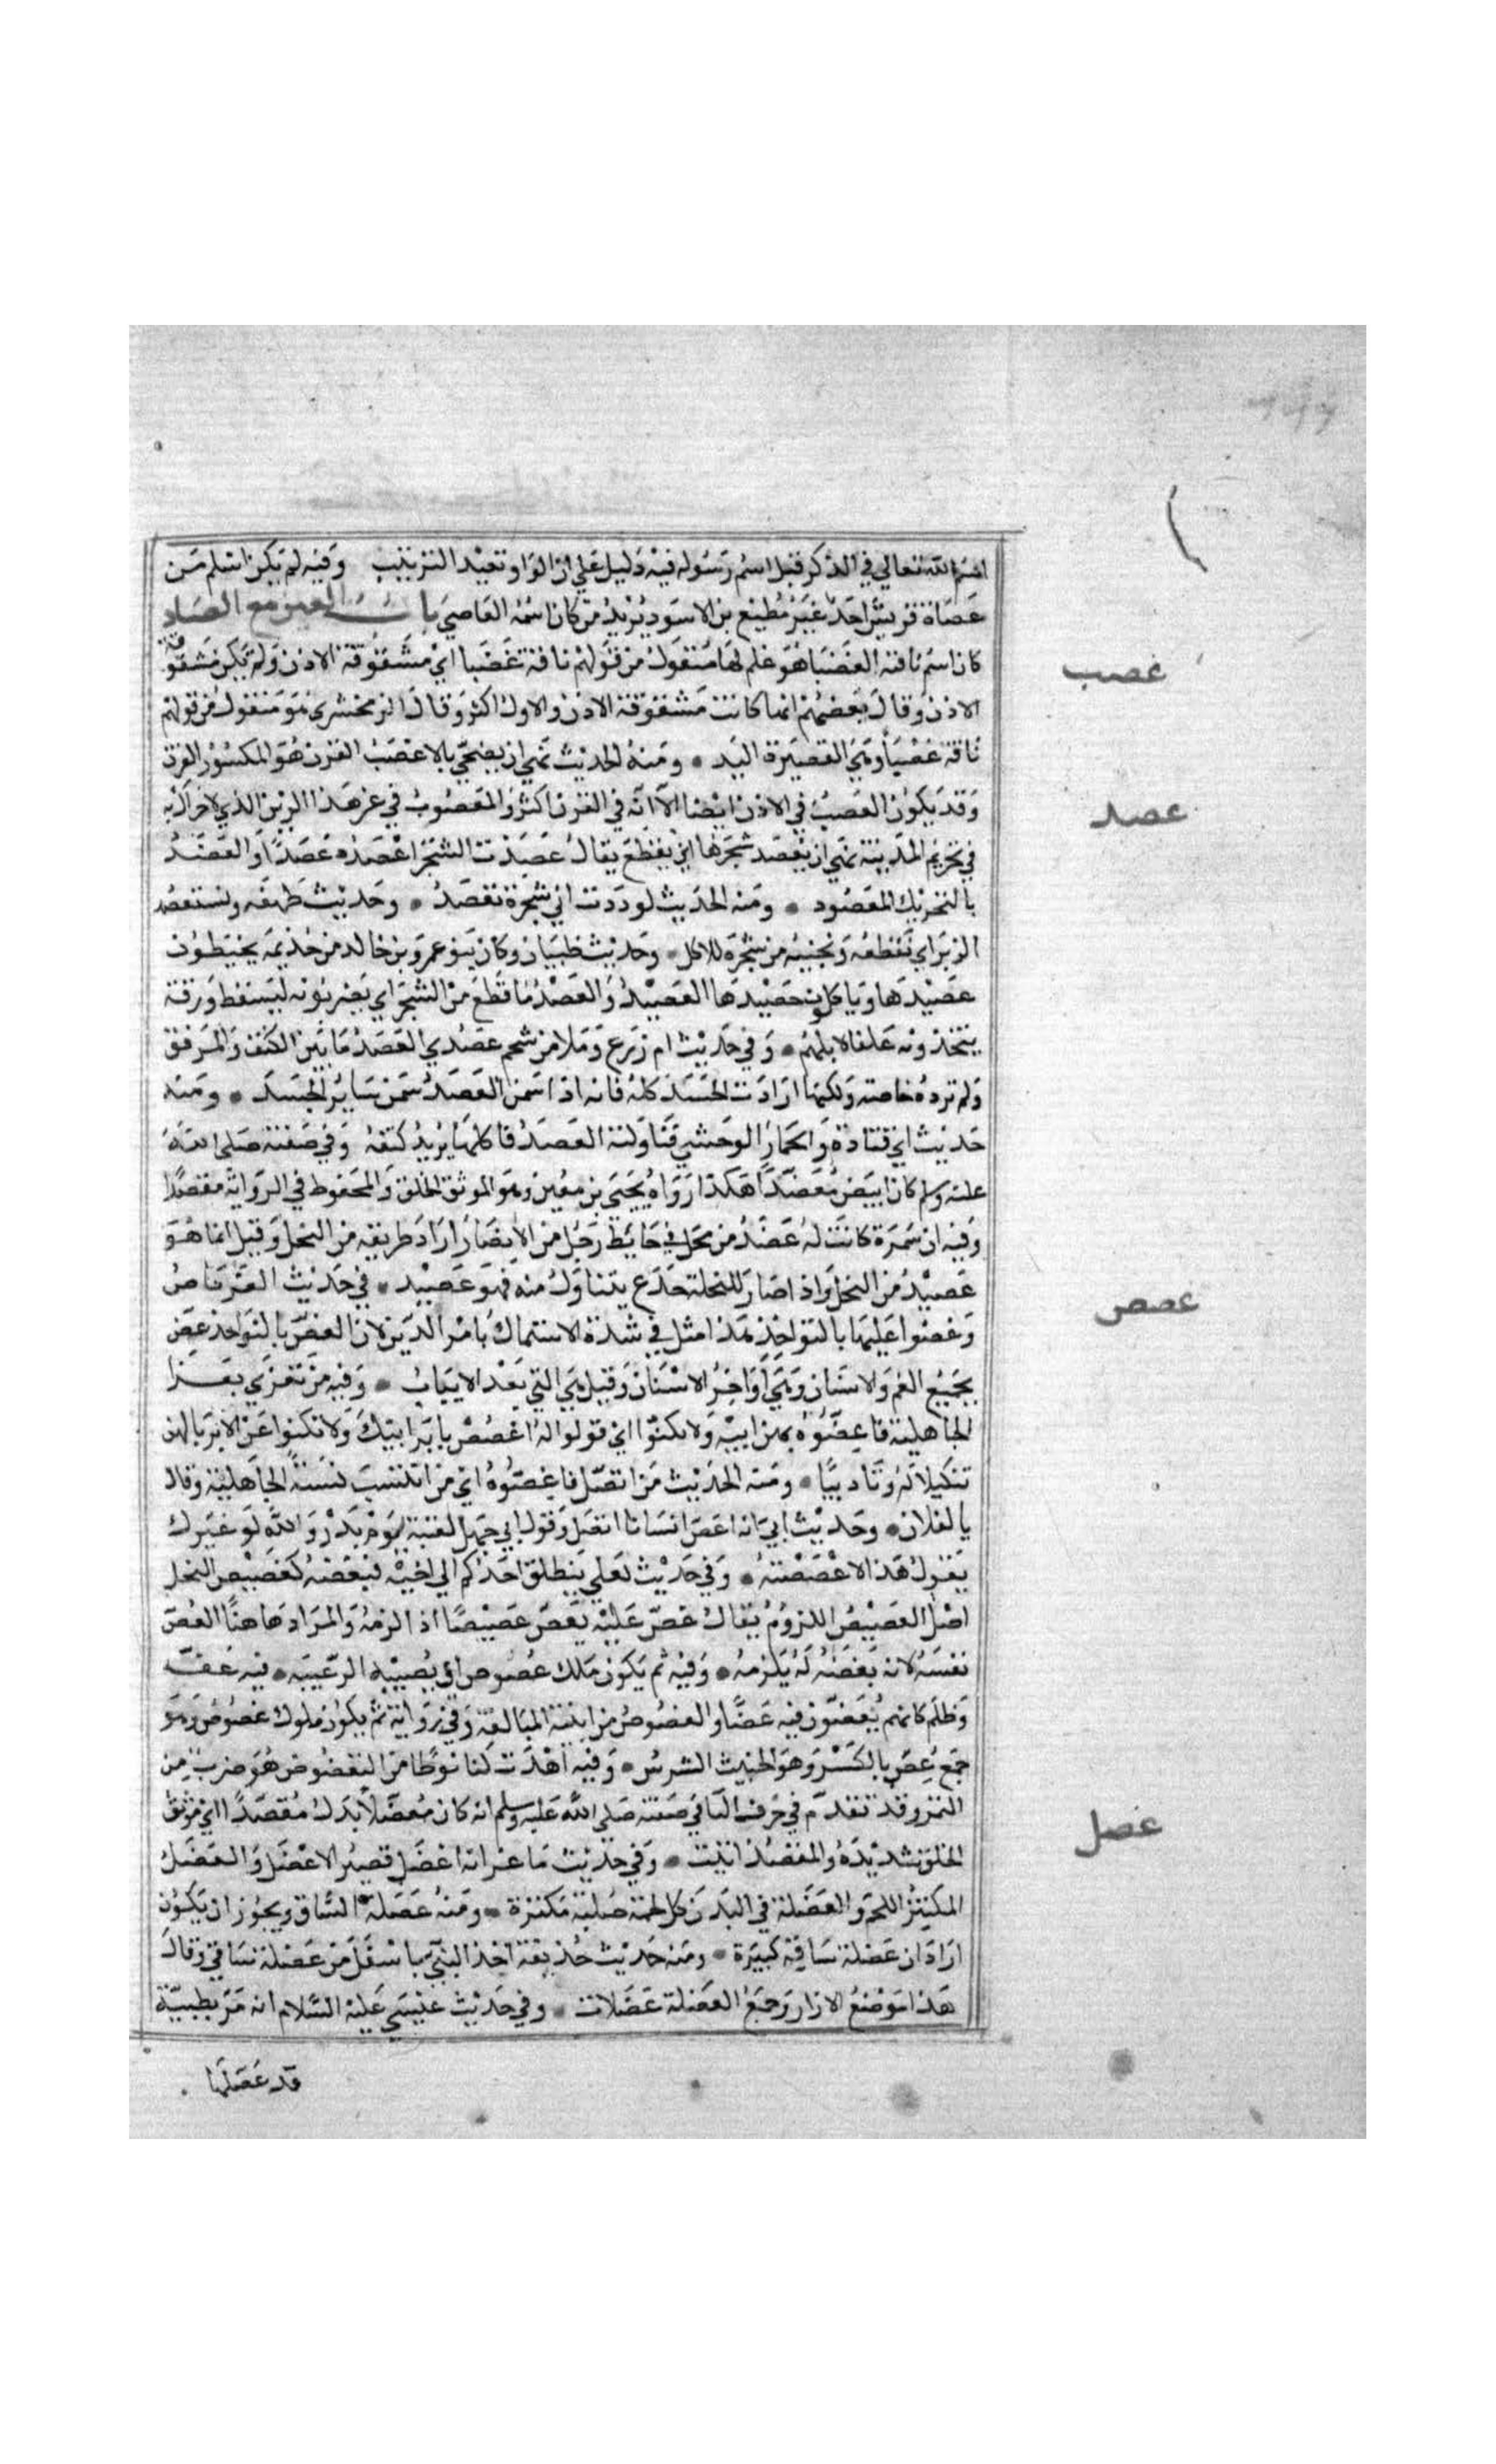 اسم الله تعالي في الذكر قبل اسم رسوله فيه دليل علي ان الواو تفيد الترتيب وفيه لم يكن اسلم من
عصاة قريش احد غير مطيع بن الاسود يريد من كان اسمه العاصي باب العين مع الضاد
غصب
كان اسم ناقته العضبا هو علم لها منقول من قولهم ناقة عضبا اي مشقوقة الاذن ولم يكن مشقوقة
الاذن وقال بعضهم انها كانت مشقوقة الاذن والاول اكثر وقال الزمخشري هو منقول من قولهم
ناقة عضبا وهي القصيرة اليد • ومنه الحديث نهي ان يضحي بالاعضب القرن هو المكسور القرن
عصد
وقد يكون العضب في الاذن ايضا الا انه في القرن اكثر والمعضوب في غير هذا الزمن الذي لا حراك به
في تحريم المدينة نهي ان يعضد شجرها اي يقطع يقال عضدت الشجر اعضده عضدا والعضد
بالتحريك المعضود • ومنه الحديث لوددت اني شجرة تعضد • وحديث طهفه ونستعضد
البرير اي نقطعه ونجنيه من شجره للاكل • وحديث ظبيان وكان بنو عمرو بن خالد من جذيمه يخبطون
عضيدها وياكلون حصيدها العضيد والعضد ما قطع من الشجر اي يضربونه ليسقط ورقه
يتخذونه علفا لابلهم • وفي حديث ام زرع وملا من شحم عضدي العضد ما بين الكتف والمرفق
ولم ترده خاصة ولكنها ارادت الجسد كله فانه اذا سمن العضد سمن ساير الجسد • ومنه
حديث ابي قتادة والحمار الوحشي فناولته العضد فاكلها يريد كتفه وفي صفته صلى الله
عليه وسلم كان ابيض معضدا هكذا رواه يحيي بن معين وهو الموثق الخلق والمحفوظ في الرواية مقصدا
وفيه ان سمرة كانت له عضد من نخل في حايط رجل من الانصار اراد طريقه من النخل وقيل انما هو
غصص
عضيد من النخل واذا صار للنخلة جذع يتناول منه فهو عضيد • في حديث العرباض
وعضوا عليها بالنواجذ هذا مثل في شدة الاستمساك بامر الدين لان العض بالنواجذ عض
بجميع الفم والاسنان وهي اواخر الاسنان وقيل هي التي بعد الانياب • وفيه من تعزي بعزا
الجاهلية فاعضوه بهن ابيه ولا تكنوا اي قولوا له اعضض باير ابيك ولا تكنوا عن الاير بالهن
تنكيلا له وتاديبا • ومنه الحديث من اتصل فاعضوه اي من انتسب نسبة الجاهلية وقال
يا لفلان • وحديث ابي انه اعض انسانا اتصل وقول ابي جهل لعتبة يوم بدر والله لو غيرك
يقول هذا لاعضضته • وفي حديث يعلي ينطلق احدكم الي اخيه فيعضه كعضيض الفحل
اصل العضيض اللزوم يقال عض عليه يعض عضيضا اذا لزمه والمراد هاهنا العض
نفسه لانه بعضه له يلزمه • وفيه ثم يكون ملك عضوض اي يصيب به الرعيه • فيه عسف
وظلم كانهم يعضون فيه عضا والعضوض من ابنية المبالغة وفي رواية ثم يكون ملوك عضوض وهو
جمع عض بالكسر وهو الخبيث الشرس • وفيه اهدت لنا نوطا من التعضوض هو ضرب من
عصل
التمر وقد تقدم في حرف التا في صفته صلى الله عليه وسلم انه كان معضلا بدل مقصدا اي موثق
الخلق شديده والمقصد اثبت • وفي حديث ماعز انه اعضل قصير الاعضل والعضل
المكتنز اللحم والعضلة في البدن كل لحمة صلبة مكتنزة • ومنه عضلة الساق ويجوز ان يكون
اراد ان عضلة ساقيه كبيرة • ومنه حديث حذيفة اخذ النبي باسفل من عضلة ساقي وقال
هذا موضع الازار وجمع العضلة عضلات • وفي حديث عيسي عليه السلام انه مر بظبية
قد عضلها